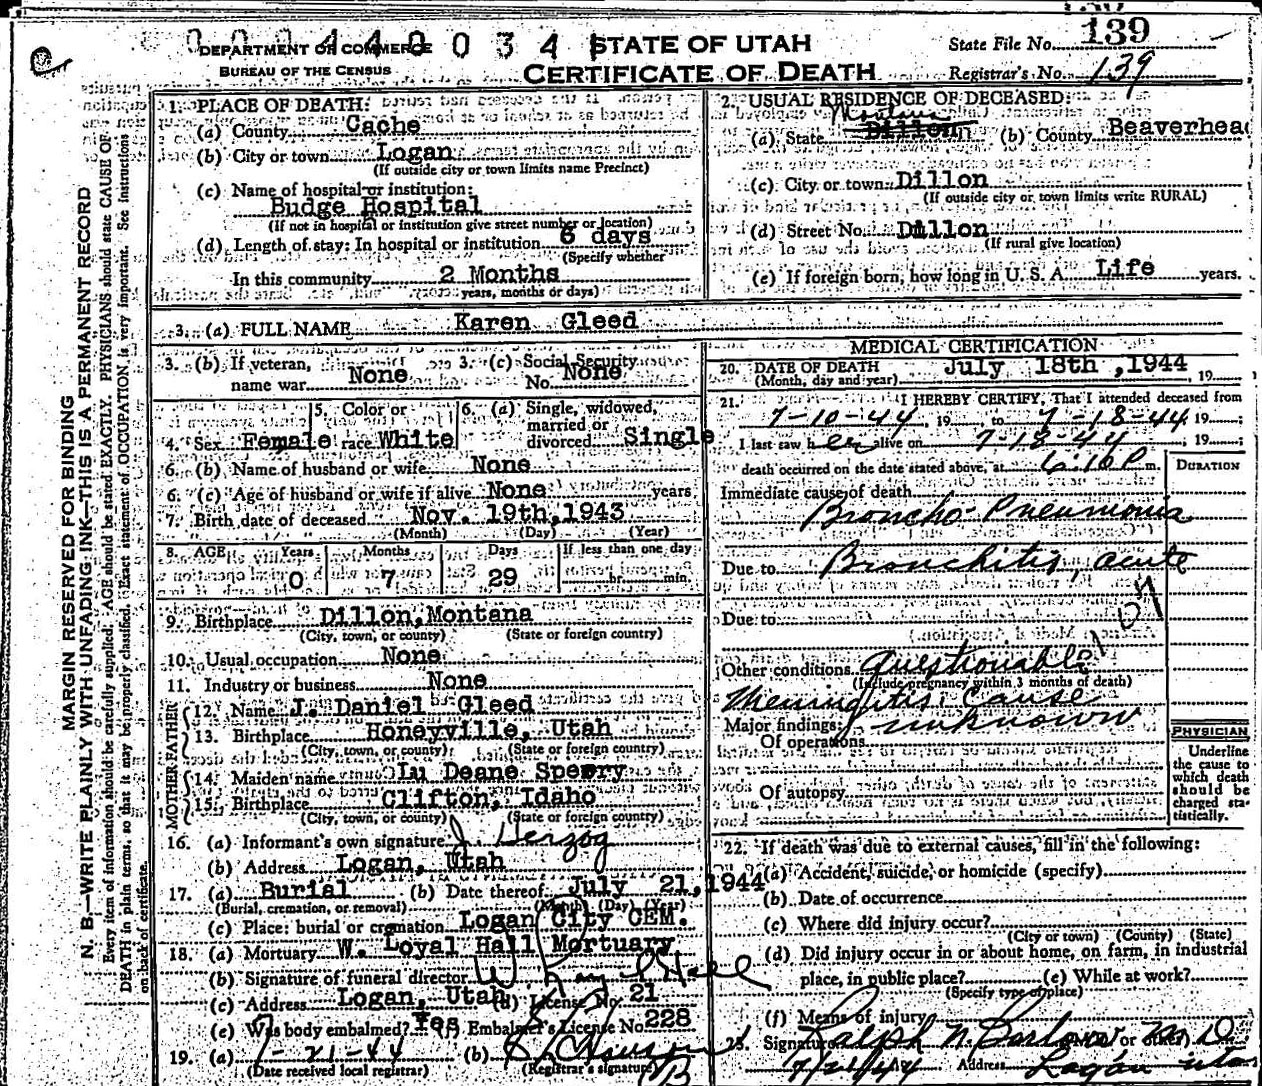 139
DEPARTMENT OF COMMERCE
BUREAU OF THE CENSUS
STATE OF UTAH
CERTIFICATE OF DEATH
State File No. 139
Registrar's No. 139
MARGIN RESERVED FOR BINDING
N. B.—WRITE PLAINLY WITH UNFADING INK—THIS IS A PERMANENT RECORD
Every item of information should be carefully supplied. AGE should be stated EXACTLY. PHYSICIANS should state CAUSE OF
DEATH in plain terms, so that it may be properly classified. Exact statement of OCCUPATION is very important. See instructions
on back of certificate.
1. PLACE OF DEATH:
(a) County Cache
(b) City or town Logan
(If outside city or town limits name Precinct)
(c) Name of hospital or institution:
Budge Hospital
(If not in hospital or institution give street number or location)
(d) Length of stay: In hospital or institution 6 days
(Specify whether
In this community 2 Months
years, months or days)
2. USUAL RESIDENCE OF DECEASED:
Montana
(a) State Dillon (b) County Beaverhea
(c) City or town Dillon
(If outside city or town limits write RURAL)
(d) Street No. Dillon
(If rural give location)
(e) If foreign born, how long in U. S. A. Life years.
3. (a) FULL NAME Karen Gleed
3. (b) If veteran, name war None
3. (c) Social Security No. None
4. Sex Female
5. Color or race White
6. (a) Single, widowed, married or divorced Single
6. (b) Name of husband or wife None
6. (c) Age of husband or wife if alive None years
7. Birth date of deceased Nov. 19th, 1943
(Month) (Day) (Year)
8. AGE Years Months Days If less than one day
0 7 29 hr. min.
9. Birthplace Dillon, Montana
(City, town, or county) (State or foreign country)
10. Usual occupation None
11. Industry or business None
FATHER
12. Name J. Daniel Gleed
13. Birthplace Honeyville, Utah
(City, town, or county) (State or foreign country)
MOTHER
14. Maiden name Lu Deane Sperry
15. Birthplace Clifton, Idaho
(City, town, or county) (State or foreign country)
16. (a) Informant's own signature J. Herzog
(b) Address Logan, Utah
17. (a) Burial (b) Date thereof July 21, 1944
(Burial, cremation, or removal) (Month) (Day) (Year)
(c) Place: burial or cremation Logan City CEM.
18. (a) Mortuary W. Loyal Hall Mortuary
(b) Signature of funeral director W Loyal Hall
(c) Address Logan, Utah (d) License No. 21
(e) Was body embalmed? Yes (f) Embalmer's License No 228
19. (a) 7-21-44 (b)
(Date received local registrar) (Registrar's signature)
MEDICAL CERTIFICATION
20. DATE OF DEATH July 18th, 1944, 19
(Month, day and year)
21. I HEREBY CERTIFY, That I attended deceased from
7-10-44, 19 to 7-18-44, 19 ;
I last saw her alive on 7-18-44, 19 ;
death occurred on the date stated above, at 6:10 P m.
DURATION
Immediate cause of death
Broncho-Pneumonia
Due to Bronchitis, acute
107
Due to
Other conditions Questionable
(Include pregnancy within 3 months of death)
Meningitis; Cause
unknown
Major findings:
Of operations
Of autopsy
PHYSICIAN
Underline
the cause to
which death
should be
charged sta-
tistically.
22. If death was due to external causes, fill in the following:
(a) Accident, suicide, or homicide (specify)
(b) Date of occurrence
(c) Where did injury occur?
(City or town) (County) (State)
(d) Did injury occur in or about home, on farm, in industrial
place, in public place? (e) While at work?
(Specify type of place)
(f) Means of injury
23. Signature Ralph N. Barlow M D (M.D. or other)
7/21/44 Address Logan Utah